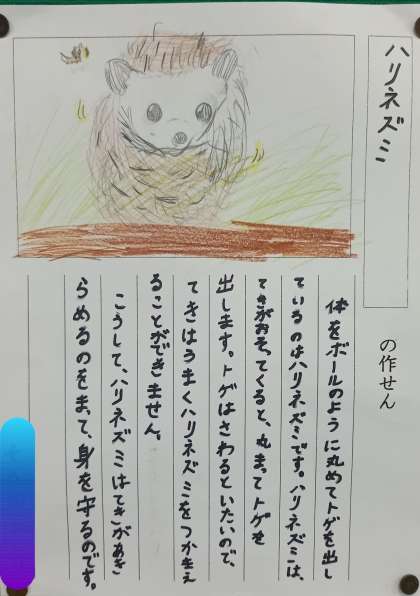 ハリネズミ
の作せん
体をボールのように丸めてトゲを出し
ているのはハリネズミです。ハリネズミは、
てきがおそってくると、丸まってトゲを
出します。トゲはさわるといたいので、
てきはうまくハリネズミをつかまえ
ることができません。
こうして、ハリネズミはてきがあき
らめるのをまって、身を守るのです。